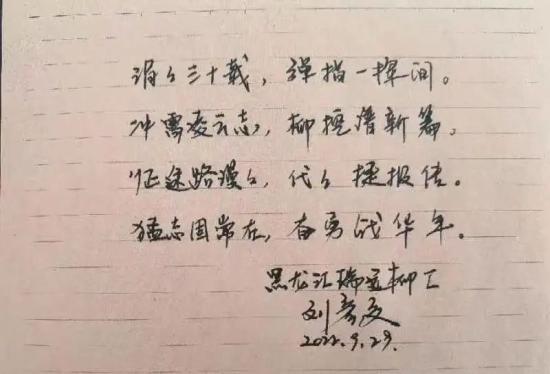 涓々三十载，弹指一挥间。
冲霄凌云志，柳挖谱新篇。
征途路漫々，代々捷报传。
猛志固常在，奋勇战华年。
黑龙江瑞远柳工
刘彦文
2022.9.29.